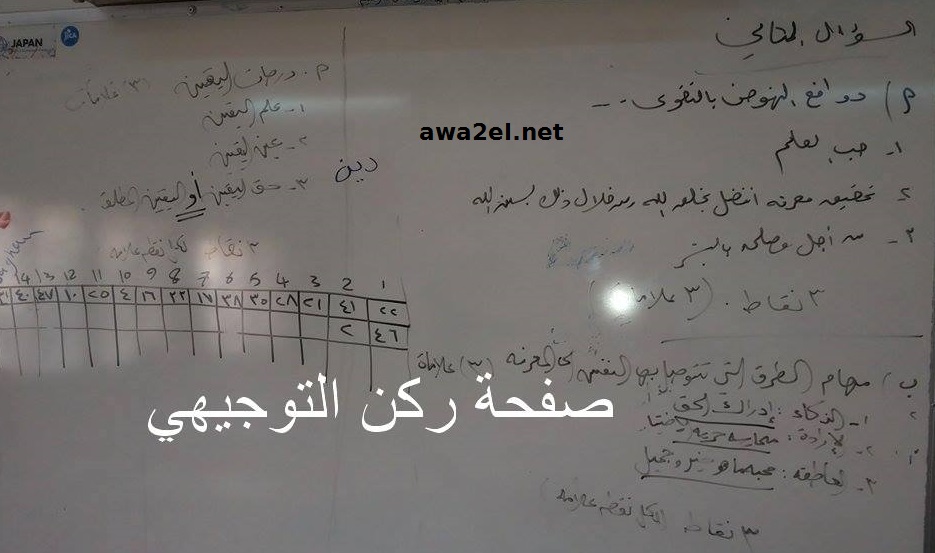 السؤال الثاني
م) دوافع النهوض بالتقوى . . --
١- حب العلم
٢ تحقيق معرفة افضل بخلق الله من خلال بسنن الله
٣- من اجل مصلحة البشر
٣ نقاط . (٣ علامات)
ب) مهام الطرق التي تتوصل بها النفس الى المعرفة (٣) علامات
١- الذكاء : إدراك الحق
٢- الإرادة :
٣- العاطفة : خير وجميل
٣ نقاط (لكل نقطة علامة)
م . درجات اليقين (٣ علامات)
١- علم اليقين
٢- عين اليقين
٣- حق اليقين أو اليقين المطلق .
دين
٣ نقاط لكل نقطة علامة
14 13 12 11 10 9 8 7 6 5 4 3 2 1
٤٠ ٤٧ ١٠ ٢٥ ٤ ١٦ ٢٢ ١٧ ٣٨ ٣٥ ٢٨ ٢١ ٤١ ٢٢
٢ ٤٦
JAPAN
jica
awa2el.net
صفحة ركن التوجيهي